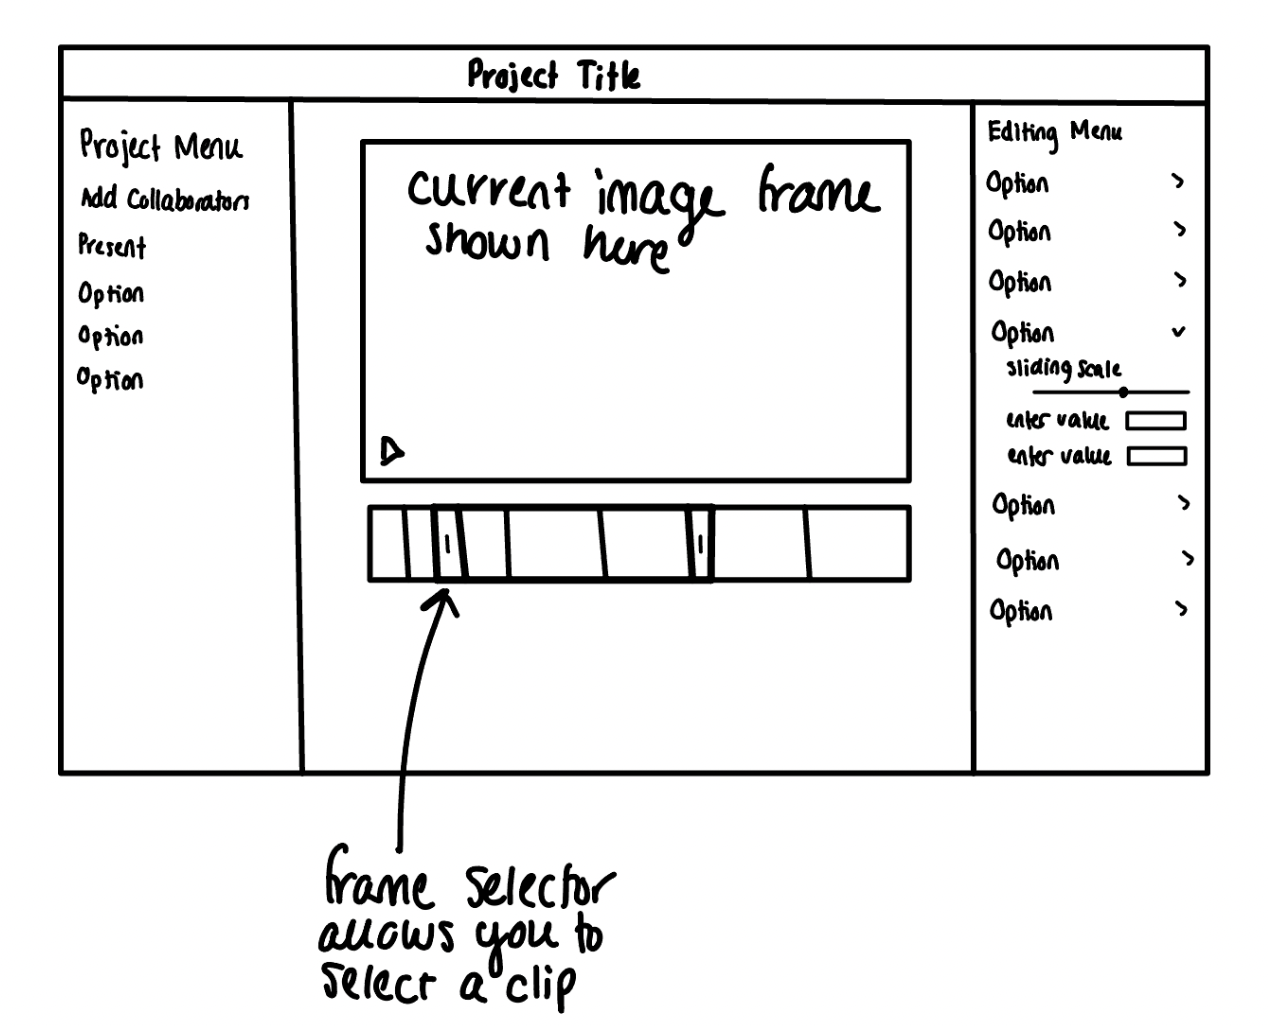 Project Title
Project Menu
Add Collaborators
Present
Option
Option
Option
current image frame
shown here
Editing Menu
Option
Option
Option
Option
sliding scale
enter value
enter value
Option
Option
Option
frame selector
allows you to
select a clip